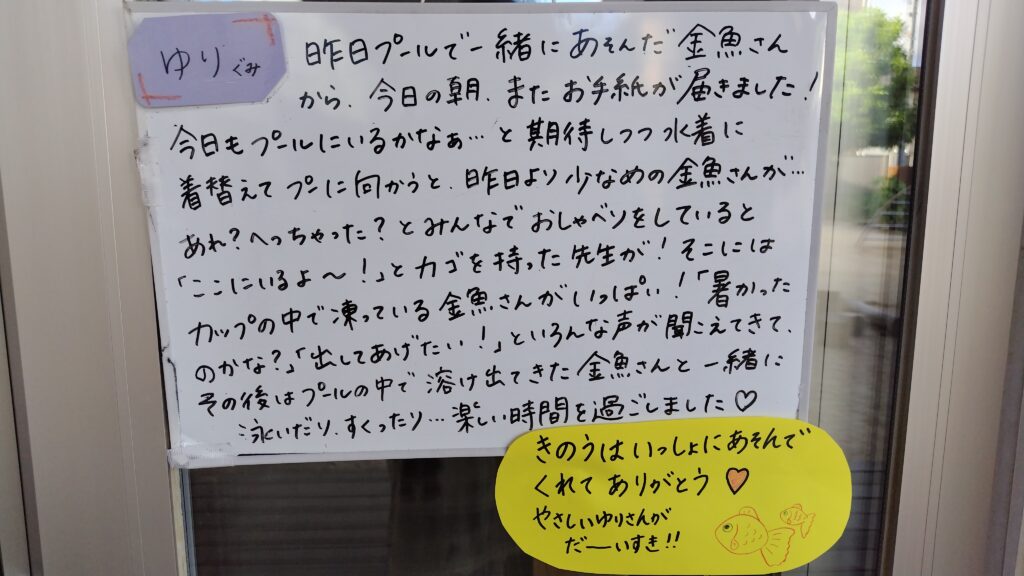 ゆりぐみ
昨日プールで一緒にあそんだ金魚さん
から、今日の朝、またお手紙が届きました!
今日もプールにいるかなぁ…と期待しつつ水着に
着替えてプールに向かうと、昨日より少なめの金魚さんが…
あれ?へっちゃった?とみんなでおしゃべりをしていると
「ここにいるよ〜!」とカゴを持った先生が!そこには
カップの中で凍っている金魚さんがいっぱい!「暑かった
のかな?」「出してあげたい!」といろんな声が聞こえてきて、
その後はプールの中で溶け出てきた金魚さんと一緒に
泳いだり、すくったり…楽しい時間を過ごしました♡
きのうはいっしょにあそんで
くれてありがとう♡
やさしいゆりさんが
だーいすき!!